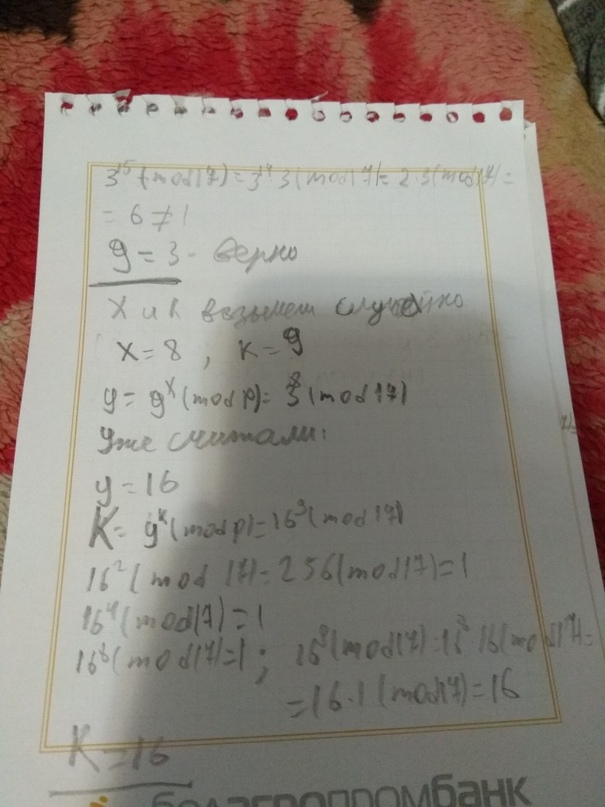 3^15 (mod 17) = 3^14·3 (mod 17) = 2·3 (mod 17) =
= 6 ≠ 1
g = 3 - верно
X и k возьмем случайно
X = 8 , k = 9
y = g^x (mod p) = 3^8 (mod 17)
Уже считали:
y = 16
K = y^k (mod p) = 16^9 (mod 17)
16^2 (mod 17) = 256 (mod 17) = 1
16^4 (mod 17) = 1
16^8 (mod 17) = 1 ; 16^9 (mod 17) = 16^8·16 (mod 17) =
= 16·1 (mod 17) = 16
K = 16
белагропромбанк